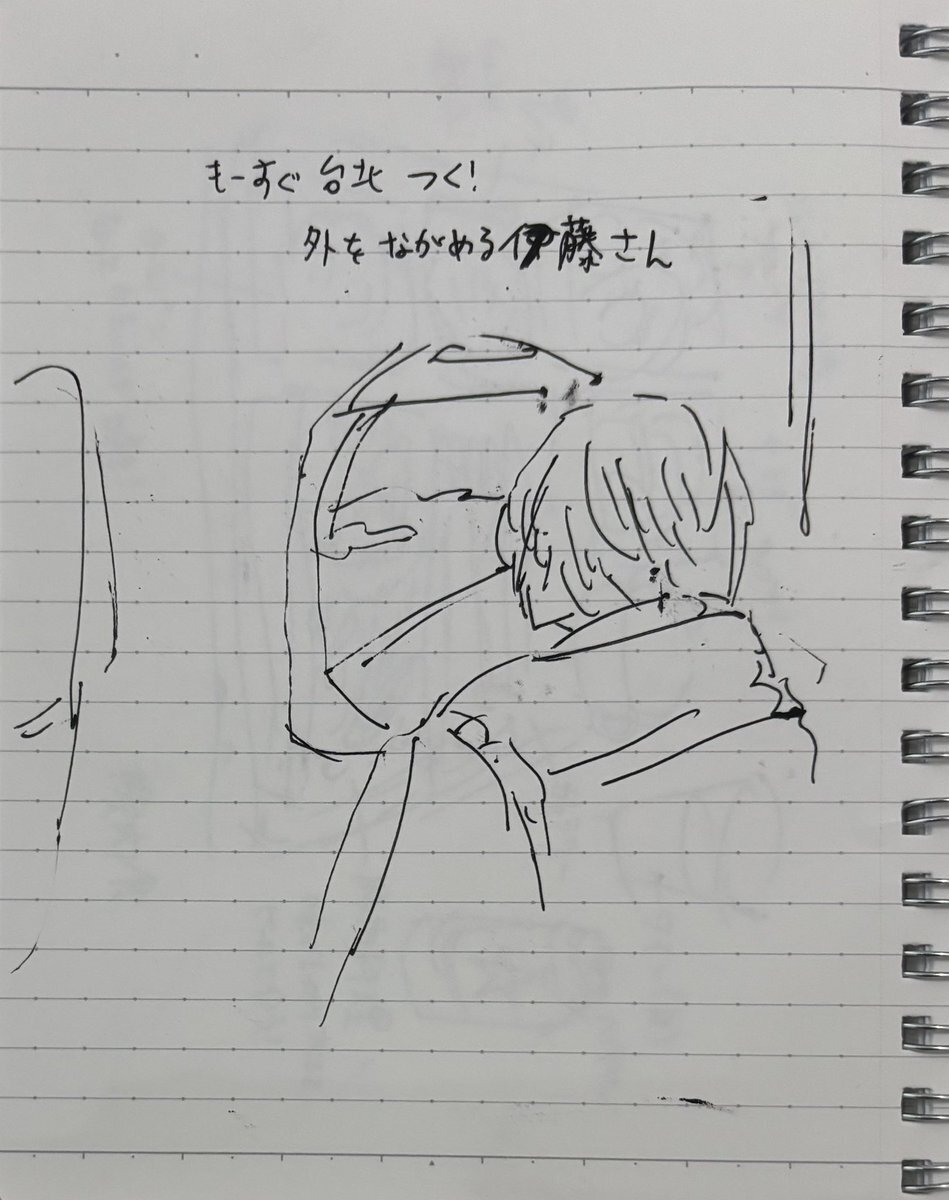 もーすぐ 台北 つく!
外をながめる伊藤さん